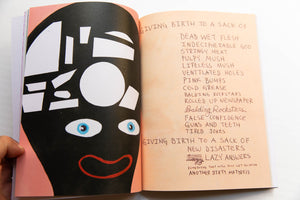 GIVING BIRTH TO A SACK OF
DEAD WET FLESH
INDESCRIBABLE GOO
STRINGY MEAT
PULPY MUSH
LIFELESS MUSH
VENTILATED HOLES
PINK BUMPS
COLD GREASE
BACKING ROCKSTARS
ROLLED UP NEWSPAPER
Balding Rockstars,
FALSE-CONFIDENCE
GUMS AND TEETH
TIRED JOKES
GIVING BIRTH TO A SACK OF
NEW DISASTERS
LAZY ANSWERS
ANOTHER DIRTY MATTRESS